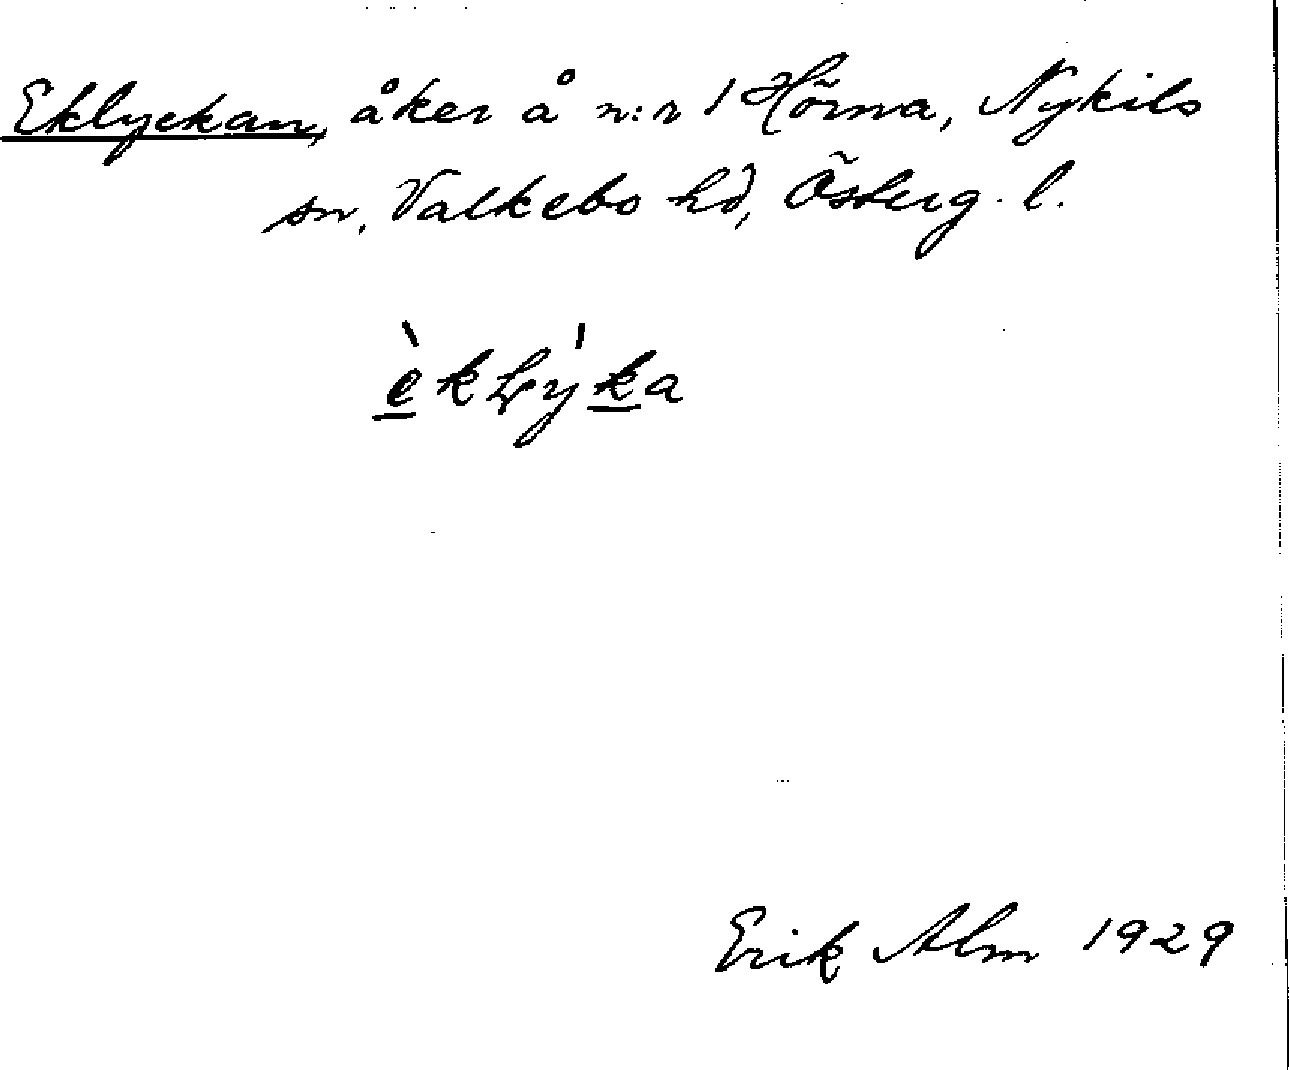 Eklyckan, åker å n:r 1 Hörna, Nykils
sn, Valkebo hd, Österg. l.
Erik Alm 1929